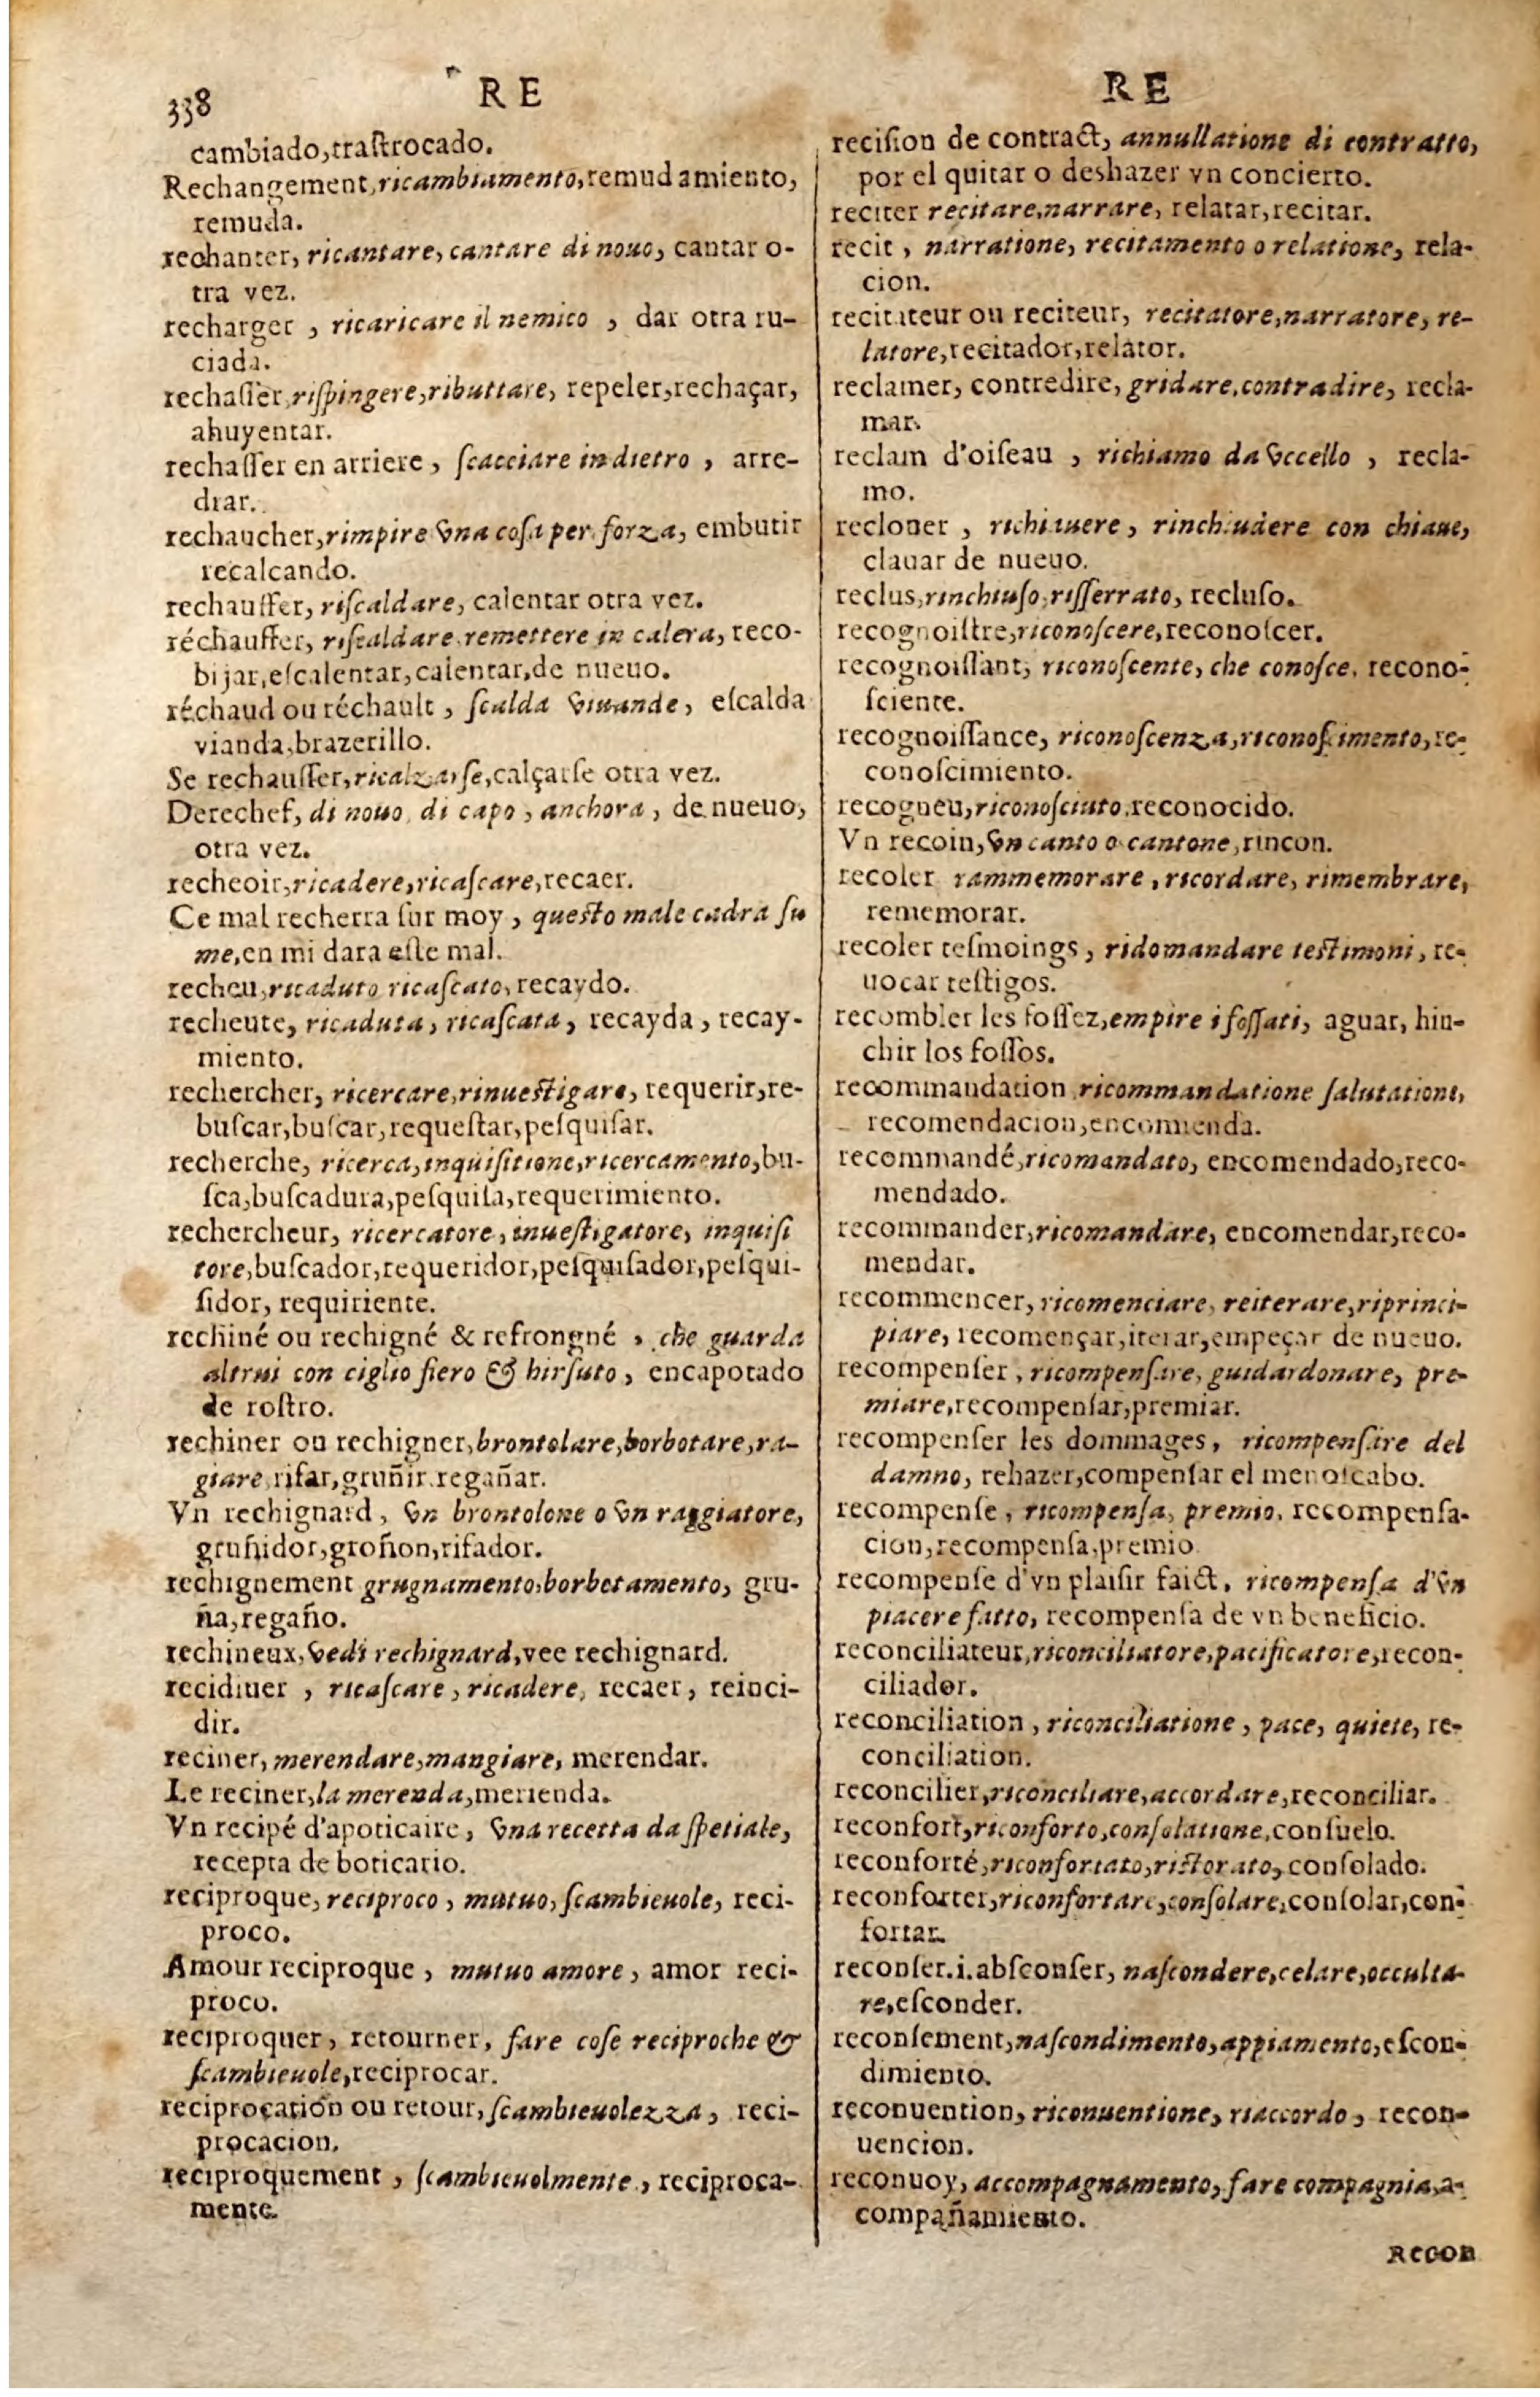 338
RE
cambiado,traſtrocado.
Rechangement,ricambiamento,remudamiento,
remuda.
rechanter, ricantare, cantare di nouo, cantar o-
tra vez.
recharger , ricaricare il nemico , dar otra ru-
ciada.
rechaſſer,riſpingere,ributtare, repeler,rechaçar,
ahuyentar.
rechaſſer en arriere, ſcacciare indietro , arre-
drar.
rechaucher,rimpire vna coſa per forza, embutir
recalcando.
rechauffer, riſcaldare, calentar otra vez.
réchauffer, riſcaldare,remettere in calera, reco-
bijar,eſcalentar,calentar,de nueuo.
réchaud ou réchault , ſcalda viuande, eſcalda
vianda,brazerillo.
Se rechauſſer,ricalzarſe,calçarſe otra vez.
Derechef, di nouo, di capo, anchora, de nueuo,
otra vez.
recheoir,ricadere,ricaſcare,recaer.
Ce mal recherra ſur moy , queſto male cadra ſu
me,en mi dara eſte mal.
recheu,ricaduto ricaſcato,recaydo.
recheute, ricaduta, ricaſcata, recayda, recay-
miento.
rechercher, ricercare,rinueſtigare, requerir,re-
buſcar,buſcar,requeſtar,peſquiſar.
recherche, ricerca,inquiſitione,ricercamento,bu-
ſca,buſcadura,peſquiſa,requerimiento.
rechercheur, ricercatore, inueſtigatore, inquiſi
tore,buſcador,requeridor,peſquiſador,peſqui-
ſidor, requiriente.
rechiné ou rechigné & refrongné , che guarda
altrui con ciglio fiero & hirſuto, encapotado
de roſtro.
rechiner ou rechigner,brontolare,borbotare,ra-
giare,rifar,gruñir,regañar.
Vn rechignard, vn brontolone o vn raggiatore,
gruñidor,groñon,rifador.
rechignement grugnamento,borbotamento, gru-
ña,regaño.
rechineux,vedi rechignard,vee rechignard.
recidiuer , ricaſcare, ricadere, recaer, reinci-
dir.
reciner, merendare,mangiare, merendar.
Le reciner,la merenda,merienda.
Vn recipé d'apoticaire, vna recetta da ſpetiale,
recepta de boticario.
reciproque, reciproco , mutuo, ſcambieuole, reci-
proco.
Amour reciproque , mutuo amore, amor reci-
proco.
reciproquer, retourner, fare coſe reciproche &
ſcambieuole,reciprocar.
reciprocation ou retour, ſcambieuolezza, reci-
procacion.
reciproquement , ſcambieuolmente, reciproca-
mente.
RE
reciſion de contract, annullatione di contratto,
por el quitar o deshazer vn concierto.
reciter recitare,narrare, relatar,recitar.
recit , narratione, recitamento o relatione, rela-
cion.
recitateur ou reciteur, recitatore,narratore, re-
latore,recitador,relator.
reclamer, contredire, gridare,contradire, recla-
mar.
reclam d'oiſeau , richiamo da vccello , recla-
mo.
reclouer , richiauere, rinchiudere con chiaue,
clauar de nueuo.
reclus,rinchiuſo,riſſerrato, recluſo.
recognoiſtre,riconoſcere,reconoſcer.
recognoiſſant, riconoſcente, che conoſce, recono-
ſciente.
recognoiſſance, riconoſcenza,riconoſcimento,re-
conoſcimiento.
recogneu,riconoſciuto,reconocido.
Vn recoin,vn canto o cantone,rincon.
recoler rammemorare, ricordare, rimembrare,
rememorar.
recoler teſmoings, ridomandare teſtimoni, re-
uocar teſtigos.
recombler les foſſez,empire i foſſati, aguar, hin-
chir los foſſos.
recommandation ricommandatione ſalutatione,
recomendacion,encomienda.
recommandé,ricomandato, encomendado,reco-
mendado.
recommander,ricomandare, encomendar,reco-
mendar.
recommencer, ricomenciare, reiterare,riprinci-
piare, recomençar,iterar,empeçar de nueuo.
recompenſer, ricompenſare, guidardonare, pre-
miare,recompenſar,premiar.
recompenſer les dommages, ricompenſare del
damno, rehazer,compenſar el menoſcabo.
recompenſe, ricompenſa, premio, recompenſa-
cion,recompenſa,premio
recompenſe d'vn plaiſir faict, ricompenſa d'vn
piacere fatto, recompenſa de vn beneficio.
reconciliateur,riconciliatore,pacificatore,recon-
ciliador.
reconciliation, riconciliatione, pace, quiete, re-
conciliation.
reconcilier,riconciliare,accordare,reconciliar.
reconfort,riconforto,conſolatione,conſuelo.
reconforté,riconfortato,riſtorato, conſolado.
reconforter,riconfortare,conſolare,conſolar,con-
fortar.
reconſer.i.abſconſer, naſcondere,celare,occulta-
re,eſconder.
reconſement,naſcondimento,appiamento,eſcon-
dimiento.
reconuention, riconuentione, riaccordo, recon-
uencion.
reconuoy, accompagnamento, fare compagnia,a-
compañamiento.
recon